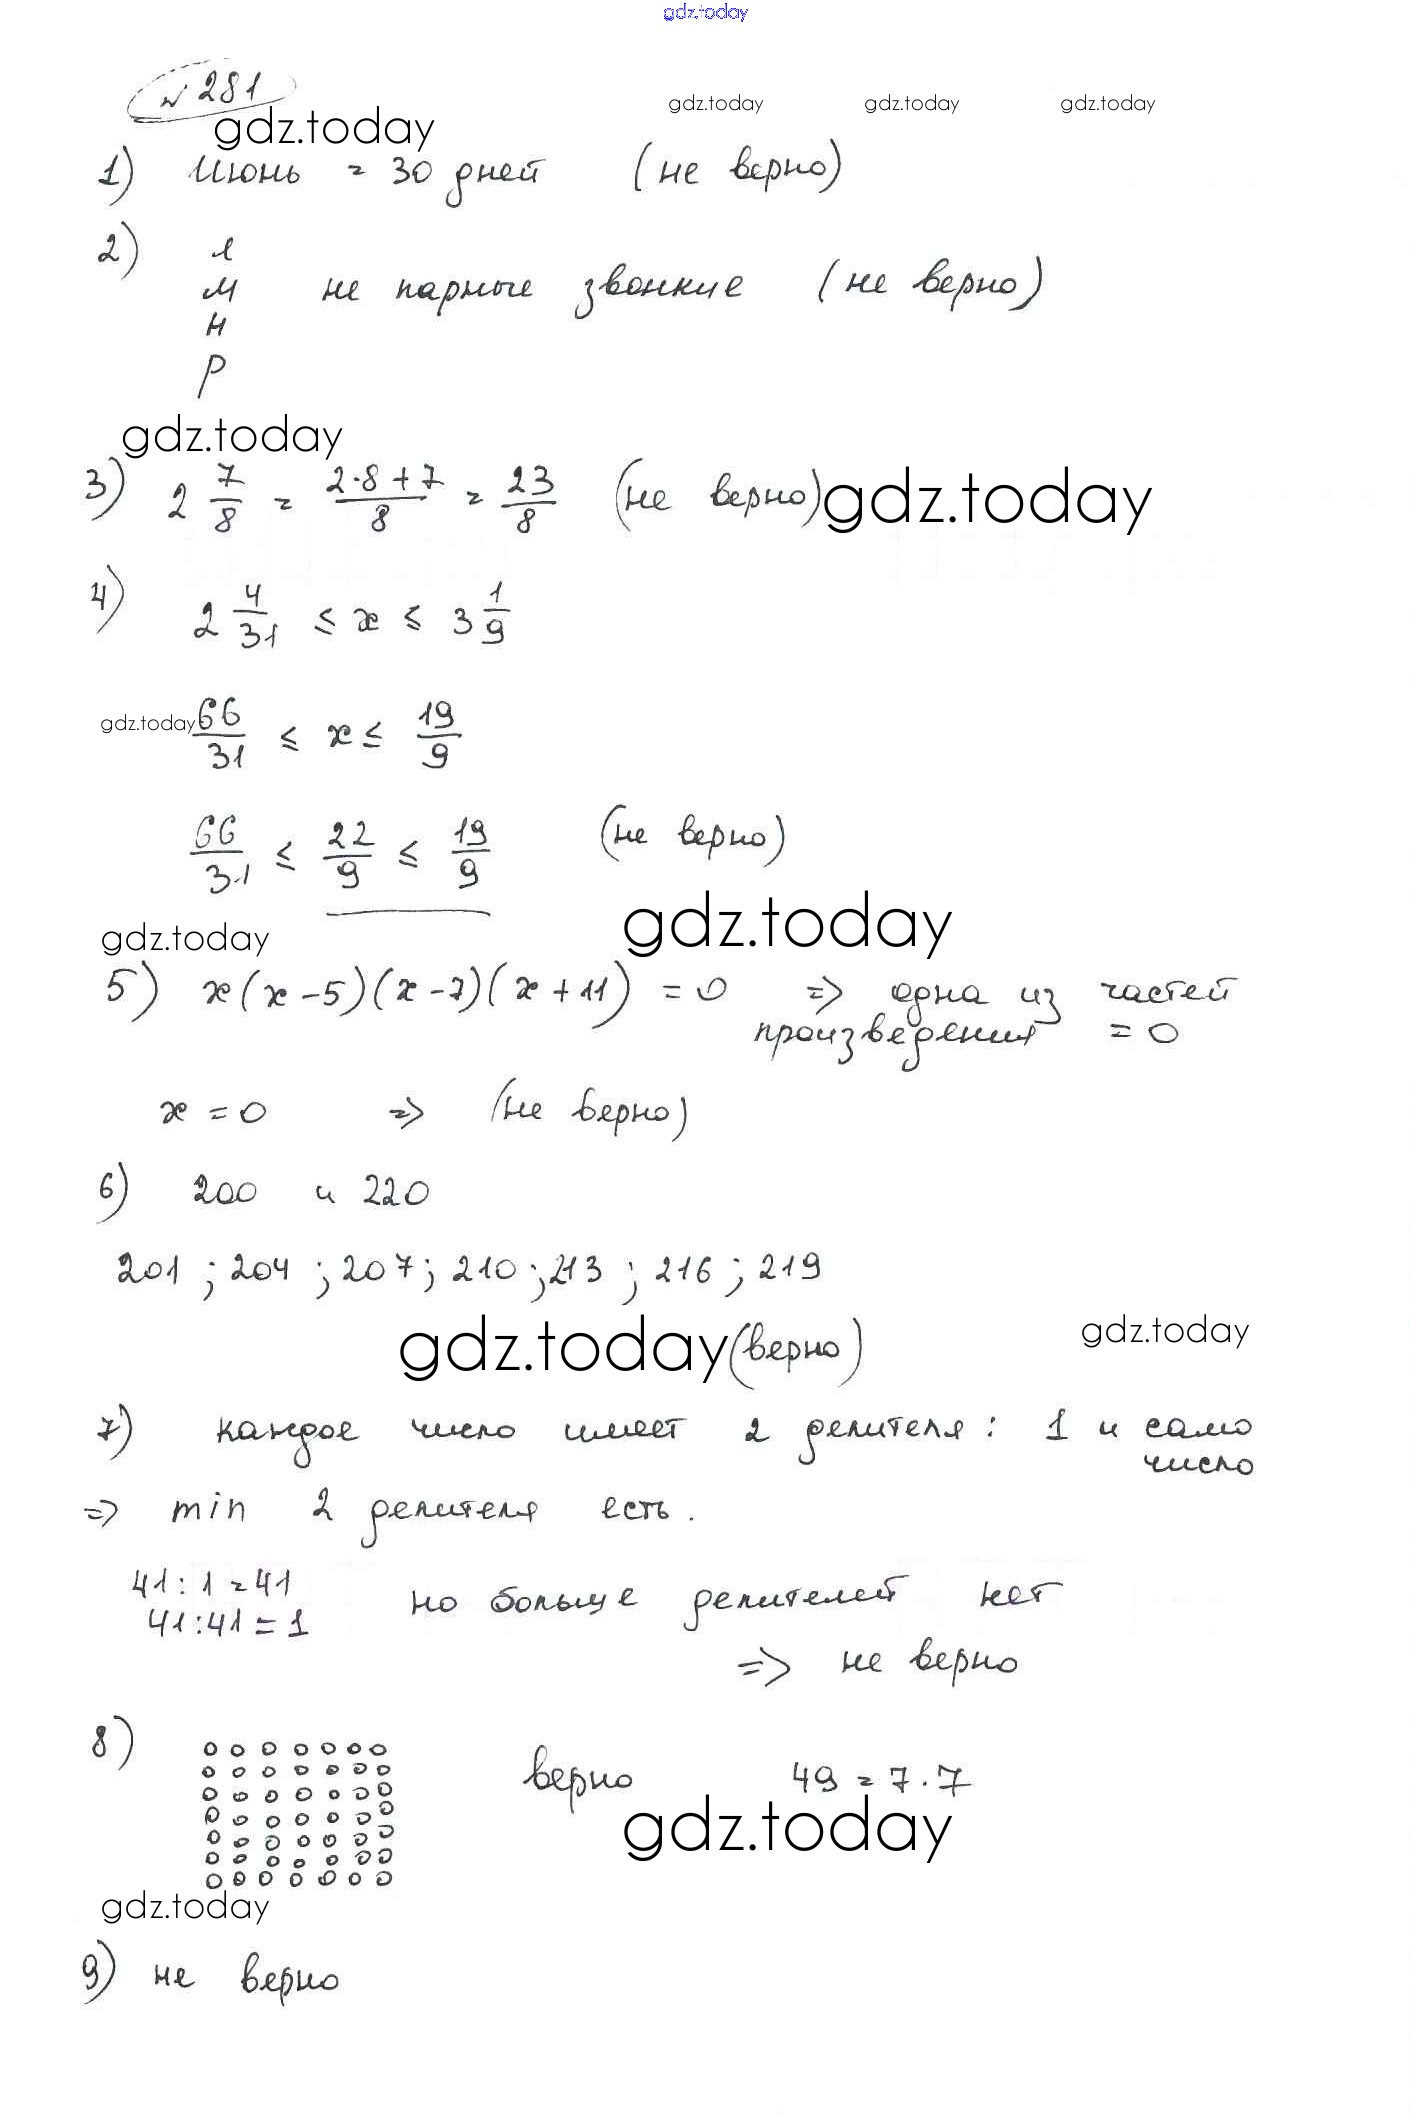 gdz.today
№ 281
gdz.today gdz.today gdz.today
gdz.today
1) Июнь = 30 дней (не верно)
2) л
м не парные звонкие (не верно)
н
р
gdz.today
3) 2 7/8 = (2·8+7)/8 = 23/8 (не верно)
gdz.today
4) 2 4/31 ≤ x ≤ 3 1/9
gdz.today
66/31 ≤ x ≤ 19/9
66/31 ≤ 22/9 ≤ 19/9 (не верно)
gdz.today
gdz.today
5) x(x-5)(x-7)(x+11) = 0 => одна из частей
произведения = 0
x = 0 => (не верно)
6) 200 и 220
201 ; 204 ; 207 ; 210 ; 213 ; 216 ; 219
gdz.today (верно) gdz.today
7) каждое число имеет 2 делителя: 1 и само
число
=> min 2 делителя есть.
41 : 1 = 41
но больше делителей нет
41 : 41 = 1
=> не верно
8) верно 49 = 7 · 7
gdz.today
gdz.today
9) не верно